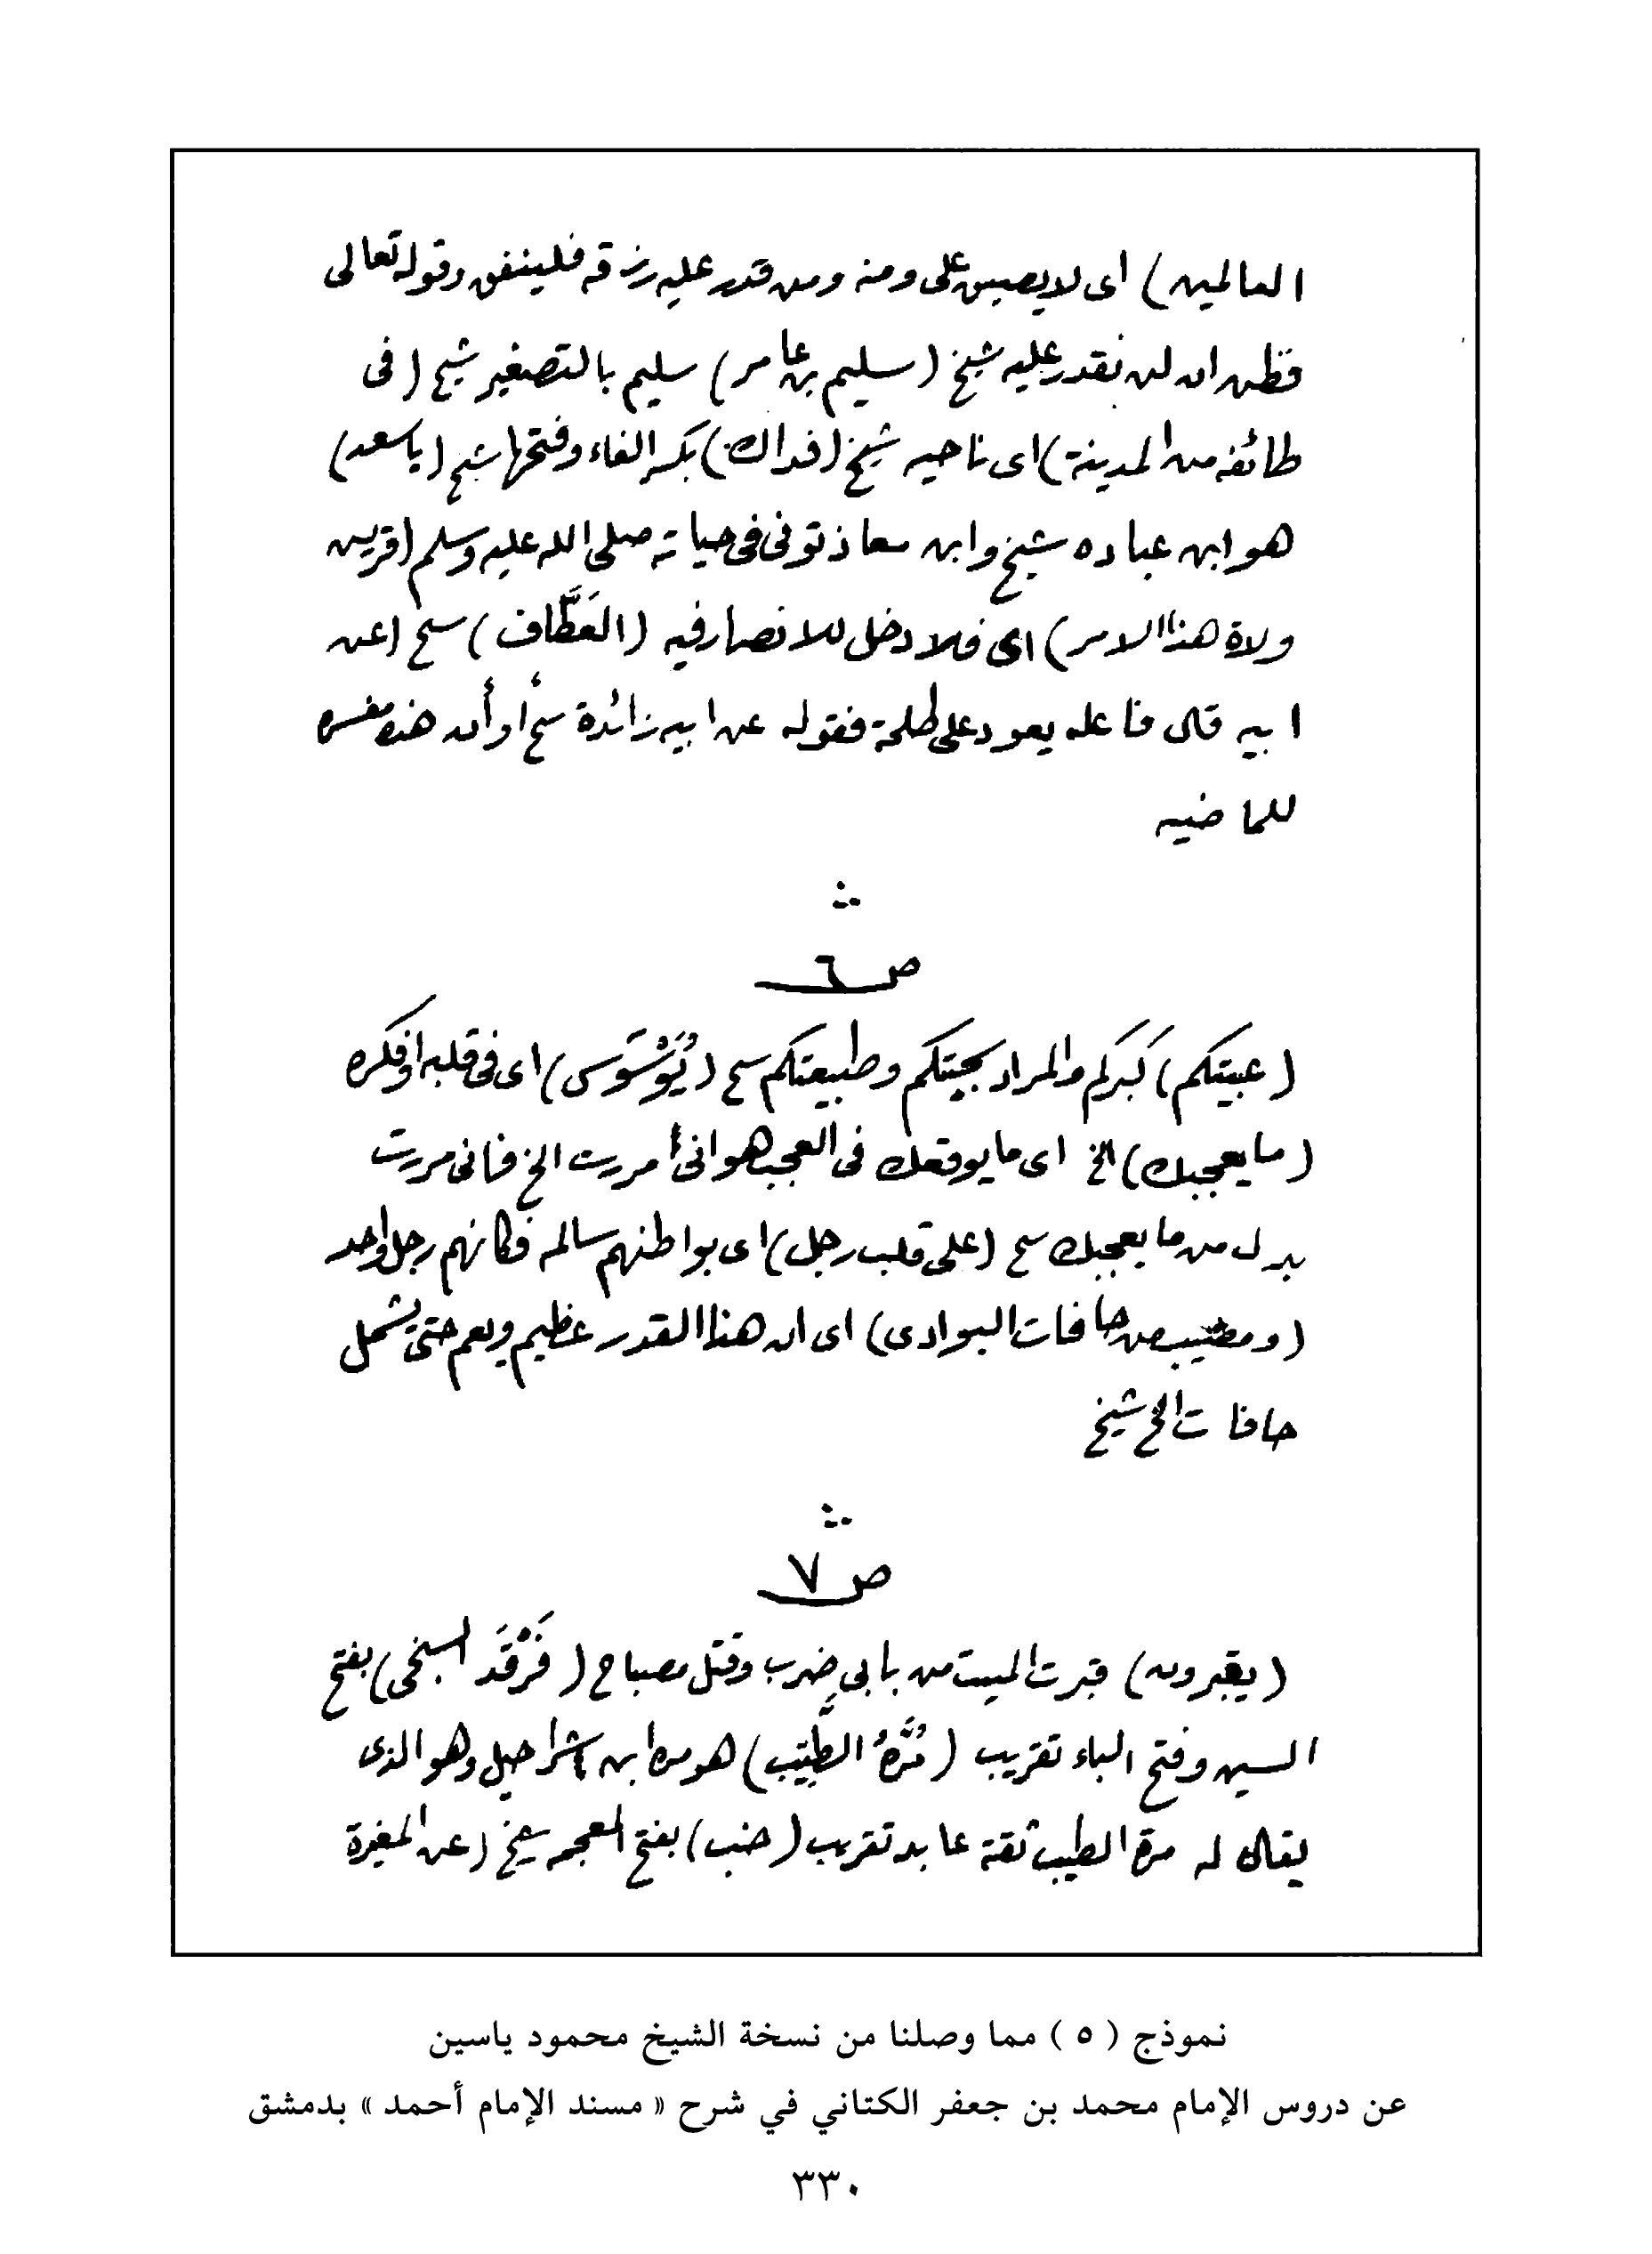 العالمين) اى لا يضيق على ومنه ومن قدر عليه رزقه فلينفق وقوله تعالى
فظن ان لن نقدر عليه شيخ (سليم بن عامر) سليم بالتصغير شيخ (فى
طائفه من المدينة) اى ناحيه شيخ (فداك) بكسر الفاء وفتحها شيخ (يا سعد)
هو ابن عباده شيخ وابن معاذ توفى فى حياته صلى الله عليه وسلم (قريش
ولاة هذا الامر) اى فلا دخل للانصار فيه (العَطَّاف) شيخ (عن
ابيه قال فاعله يعود على طلحة فقوله عن ابيه زائدة شيخ أو أن هذه مفسره
للماضيه
ص ٦
(عبيتكم) كبركم والمراد سجيتكم وطبيعتكم شيخ (يُوَسْوَس) اى فى قلبه او فكره
(ما يعجبك) الخ اى ما يوقعك فى العجب هو انى مررت الخ فانى مررت
بدل من ما يعجبك شيخ (على قلب رجل) اى بواطنهم سالمه فكانهم رجل واحد
(ومصيب من حافات البوادى) اى ان هذا القدر عظيم ويعم حتى يشمل
حافات الخ شيخ
ص ٧
(يقبرونه) قبرت الميت من بابى ضرب وقتل مصباح (فَرْقَد السبخى) بفتح
السين وفتح الباء تقريب (مُرَّهُ الطَّيِّب) هو مره ابن شراحيل وهو الذى
يقال له مرة الطيب ثقة عابد تقريب (ضب) بفتح المعجمه شيخ (عن المغيرة
نموذج ( ٥ ) مما وصلنا من نسخة الشيخ محمود ياسين
عن دروس الإمام محمد بن جعفر الكتاني في شرح « مسند الإمام أحمد » بدمشق
٣٣٠